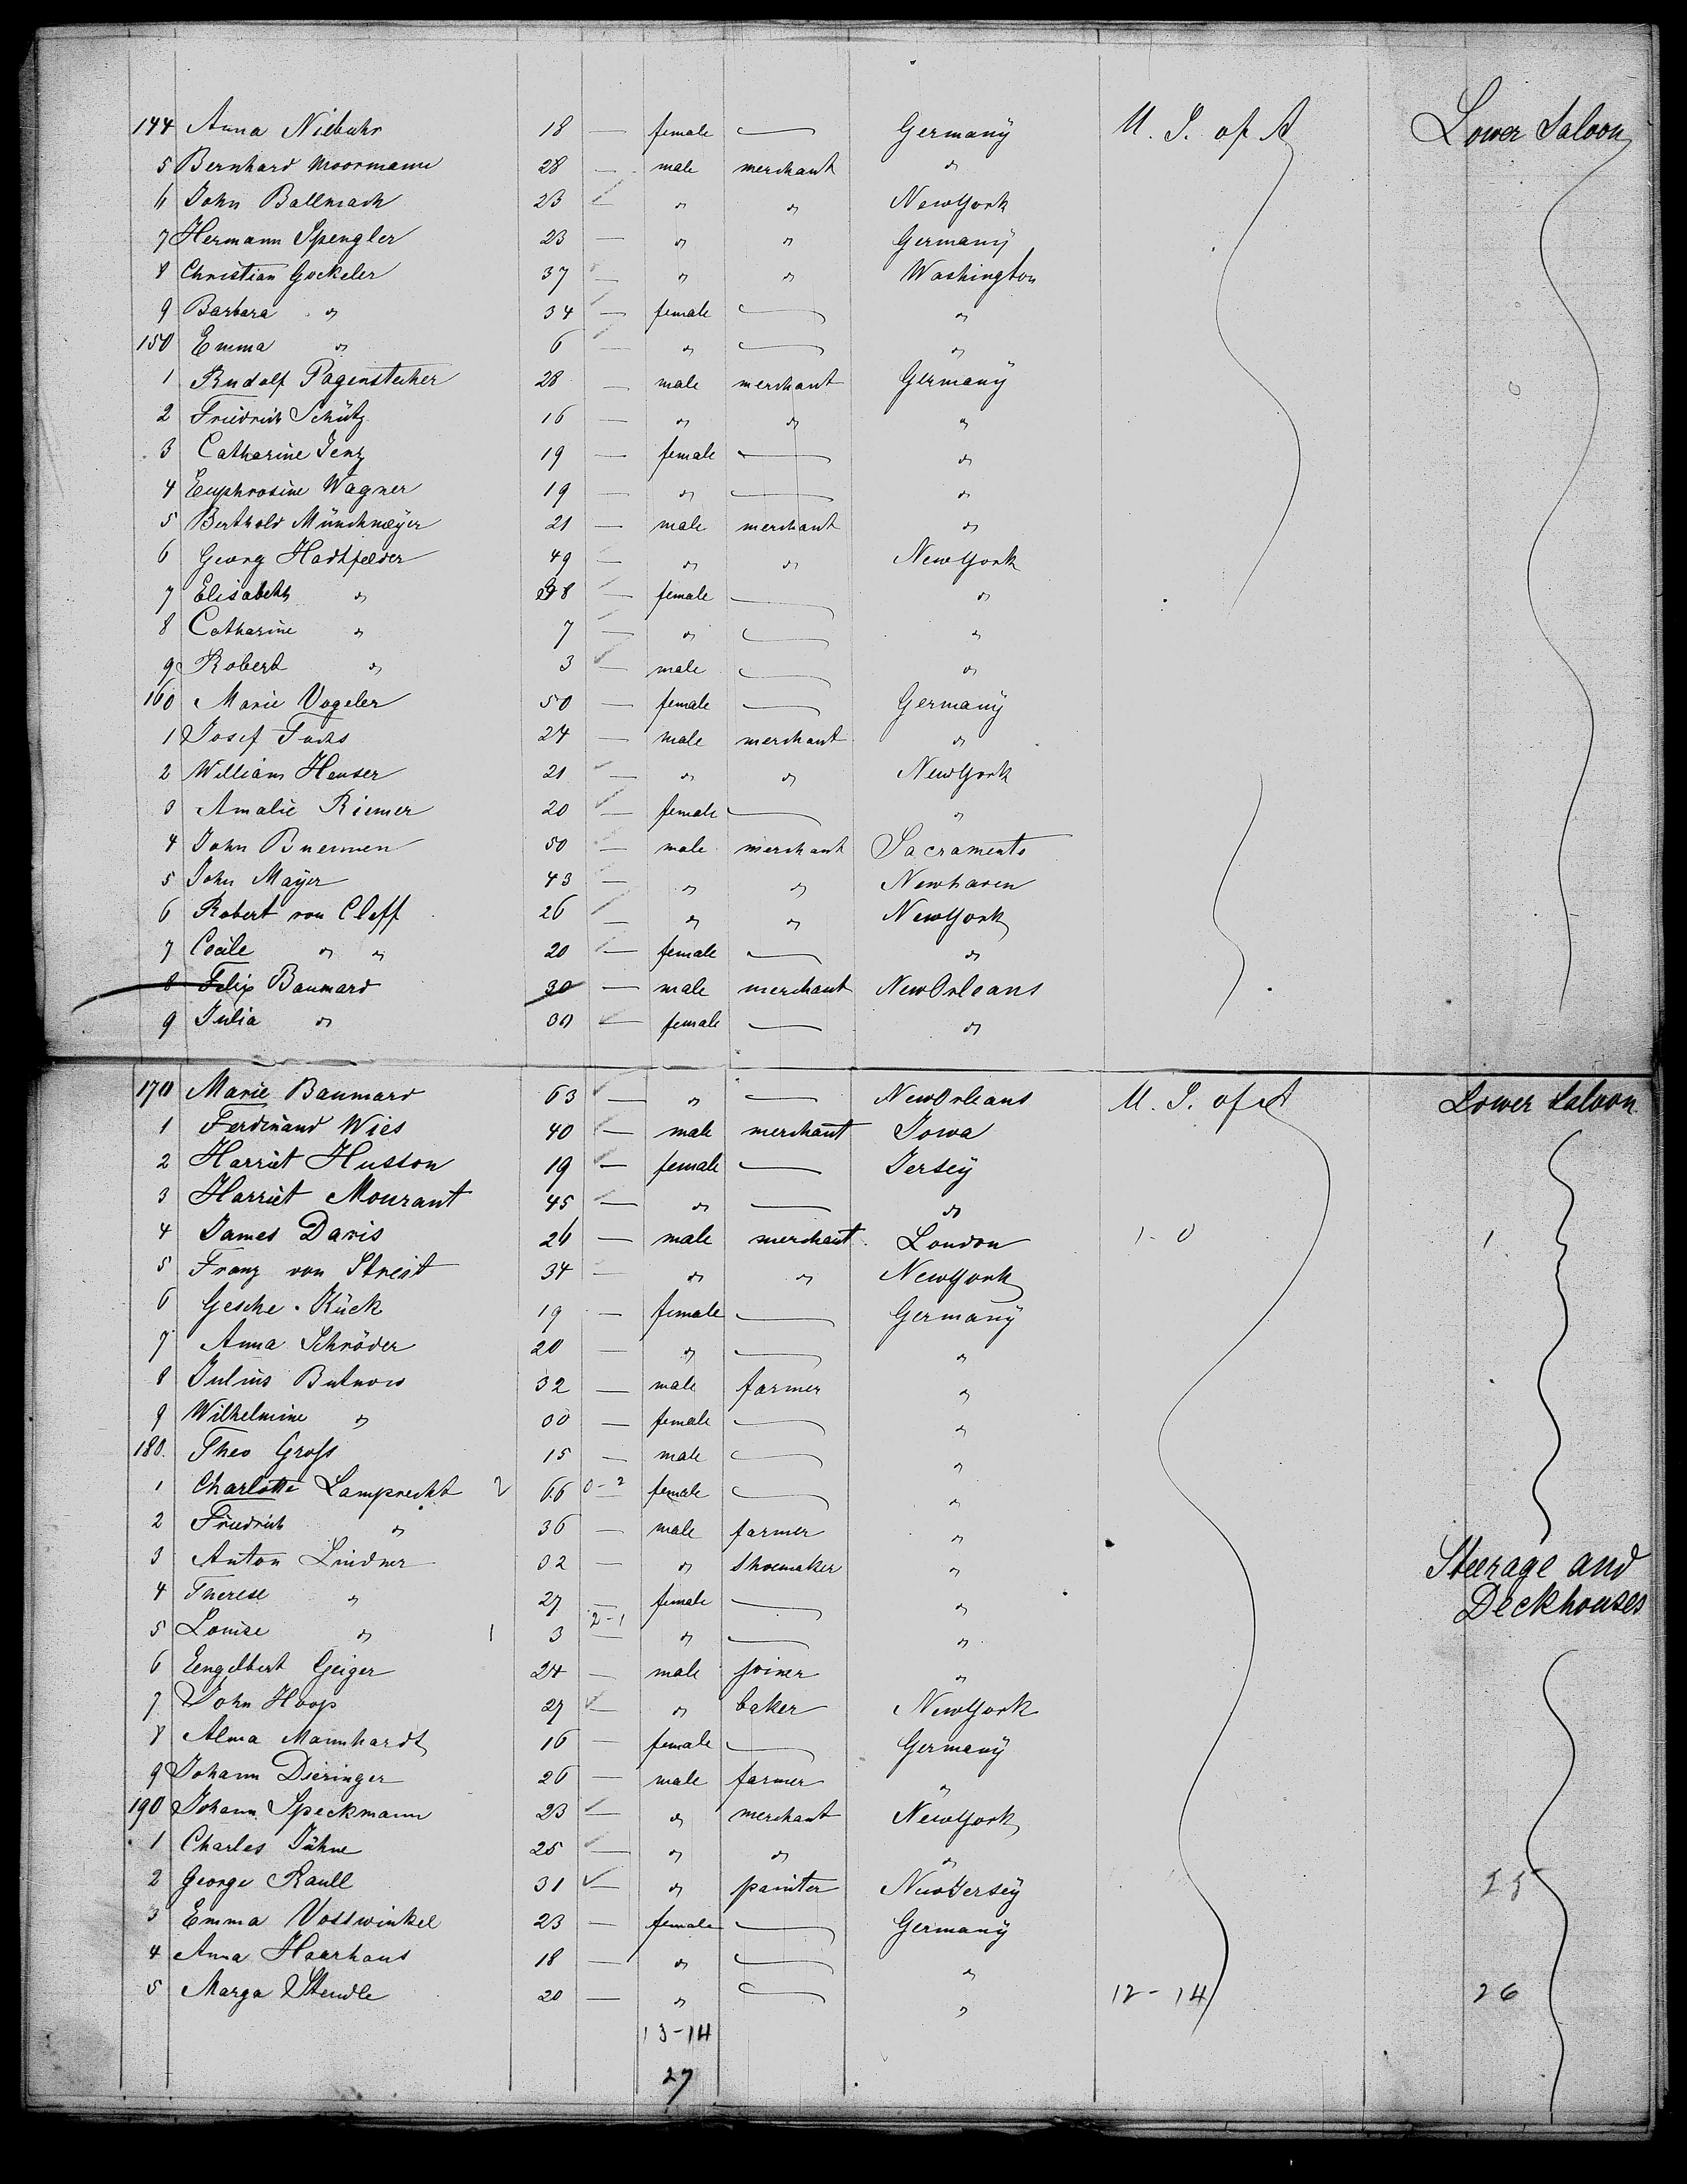 144 Anna Niebuhr 18 — female — Germany U. S. of A Lower Saloon
5 Bernhard Moormann 28 — male merchant "
6 John Ballmach 23 — " " New York
7 Hermann Spengler 23 — " " Germany
8 Christian Gockeler 37 — " " Washington
9 Barbara " 34 — female — "
150 Emma " 6 — " — "
1 Rudolf Pagenstecher 28 — male merchant Germany
2 Friedrich Schütz 16 — " " "
3 Catharine Jenz 19 — female — "
4 Euphrosine Wagner 19 — " — "
5 Berthold Münchmeÿer 21 — male merchant "
6 Georg 49 — " " New York
7 Elisabeth " 38 — female — "
8 Catharine " 7 — " — "
9 Robert " 3 — male — "
160 Marie Vogeler 50 — female — Germany
1 Josef Fuchs 24 — male merchant "
2 William Heuser 21 — " " New York
3 Amalie Riemer 20 — female — "
4 John 50 — male merchant Sacramento
5 John Maÿer 43 — " " Newhaven
6 Robert von Cleff 26 — " " New York
7 Cecile " " 20 — female — "
8 Felix Baumard 30 — male merchant New Orleans
9 Julia " 30 — female — "
170 Marie Baumard 63 — " — New Orleans U. S. of A Lower Saloon
1 Ferdinand Wies 40 — male merchant Iowa
2 Harriet Husson 19 — female — Jersey
3 Harriet Mourant 45 — " — "
4 James Davis 26 — male merchant London 1-0 1
5 Franz von Streit 34 — " " New York
6 Gesche Kück 19 — female — Germany
7 Anna Schröder 20 — " — "
8 Julius Butnow 32 — male farmer "
9 Wilhelmine " 30 — female — "
180. Theo Gross 15 — male — "
1 Charlotte Lamprecht 2 66 0-2 female — "
2 Friedrich " 36 — male farmer "
3 Anton Lindner 32 — " shoemaker " Steerage and
4 Therese " 27 — female — " Deckhouses
5 Louise " 1 3 2-1 " — "
6 Eengelbert Geiger 24 — male joiner "
7 John Hoop 27 — " baker New York
8 Alma Mannhardt 16 — female — Germany
9 Johann Dieringer 26 — male farmer "
190 Johann Speckmann 23 — " merchant New York
1 Charles Jähne 25 — " " "
2 George Raull 31 — " painter New Jersey 25
3 Emma Vosswinkel 23 — female — Germany
4 Anna Haarhaus 18 — " — "
5 Marga Stendle 20 — " — " 12-14 26
13-14
27